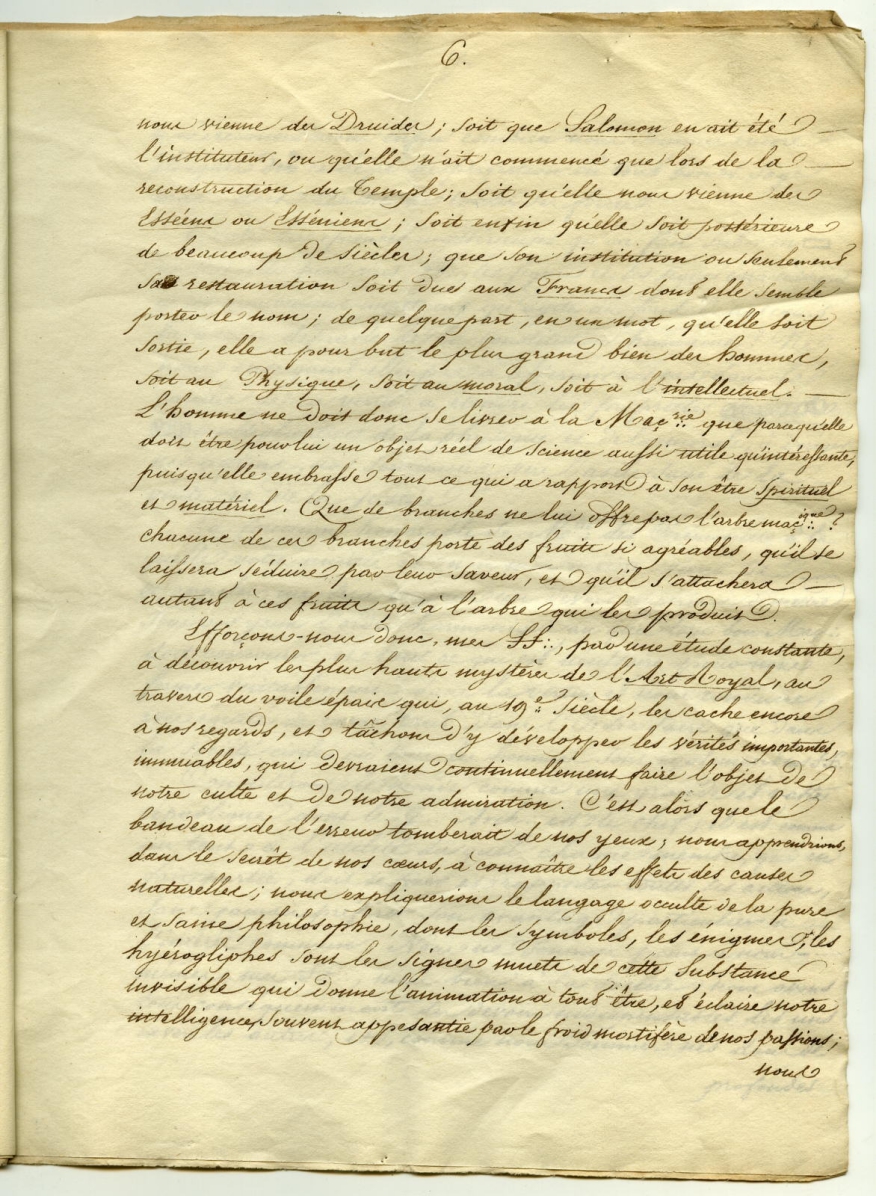 6.
nous vienne des Druides ; soit que Salomon en ait été
l'instituteur, ou qu'elle n'ait commencé que lors de la
reconstruction du Temple ; soit qu'elle nous vienne des
Esséens ou Esséniens ; soit enfin qu'elle soit postérieure
de beaucoup de siècles ; que son institution ou seulement
sa restauration soit dues aux Francs dont elle semble
porter le nom ; de quelque part, en un mot, qu'elle soit
sortie, elle a pour but le plus grand bien des hommes,
soit au Physique, soit au moral, soit à l'intellectuel.
L'homme ne doit donc se livrer à la Maç.rie∴ que parcequ'elle
doit être pour lui un objet réel de science aussi utile qu'intéressante,
puisqu'elle embrasse tout ce qui a rapport à son être spirituel
et matériel. Que de branches ne lui offre pas l'arbre maç.ique∴ ?
chacune de ces branches porte des fruits si agréables, qu'il se
laissera séduire par leur saveur, et qu'il s'attachera
autant à ces fruits qu'à l'arbre qui les produit.
Efforçons-nous donc, mes FF∴, par une étude constante,
à découvrir les plus hauts mystères de l'Art Royal, au
travers du voile épais qui, au 19.e Siècle, les cache encore
à nos regards, et tâchons d'y développer les vérités importantes,
immuables, qui devraient continuellement faire l'objet de
notre culte et de notre admiration. C'est alors que le
bandeau de l'erreur tomberait de nos yeux ; nous apprendrions,
dans le secrêt de nos cœurs, à connaître les effets des causes
naturelles ; nous expliquerions le langage occulte de la pure
et saine philosophie, dont les symboles, les énigmes, les
hyérogliphes sont les signes muets de cette substance
invisible qui donne l'animation à tout être, et éclaire notre
intelligence souvent appesantie par le froid mortifère de nos passions ;
nous